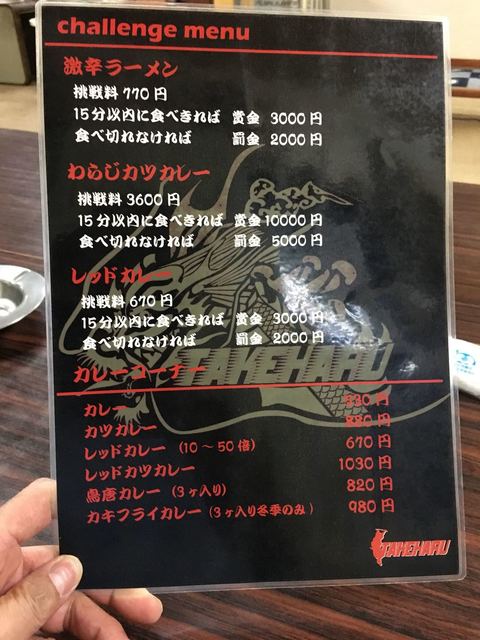 challenge menu
激辛ラーメン
挑戦料 770 円
15分以内に食べきれば 賞金 3000 円
食べ切れなければ 罰金 2000 円
わらじカツカレー
挑戦料 3600 円
15分以内に食べきれば 賞金 10000 円
食べ切れなければ 罰金 5000 円
レッドカレー
挑戦料 670 円
15分以内に食べきれば 賞金 3000 円
食べ切れなければ 罰金 2000 円
TAKEHARU
カレーコーナー
カレー 530 円
カツカレー 880 円
レッドカレー (10～50倍) 670 円
レッドカツカレー 1030 円
鳥唐カレー (3ヶ入り) 820 円
カキフライカレー (3ヶ入り冬季のみ) 980 円
TAKEHARU